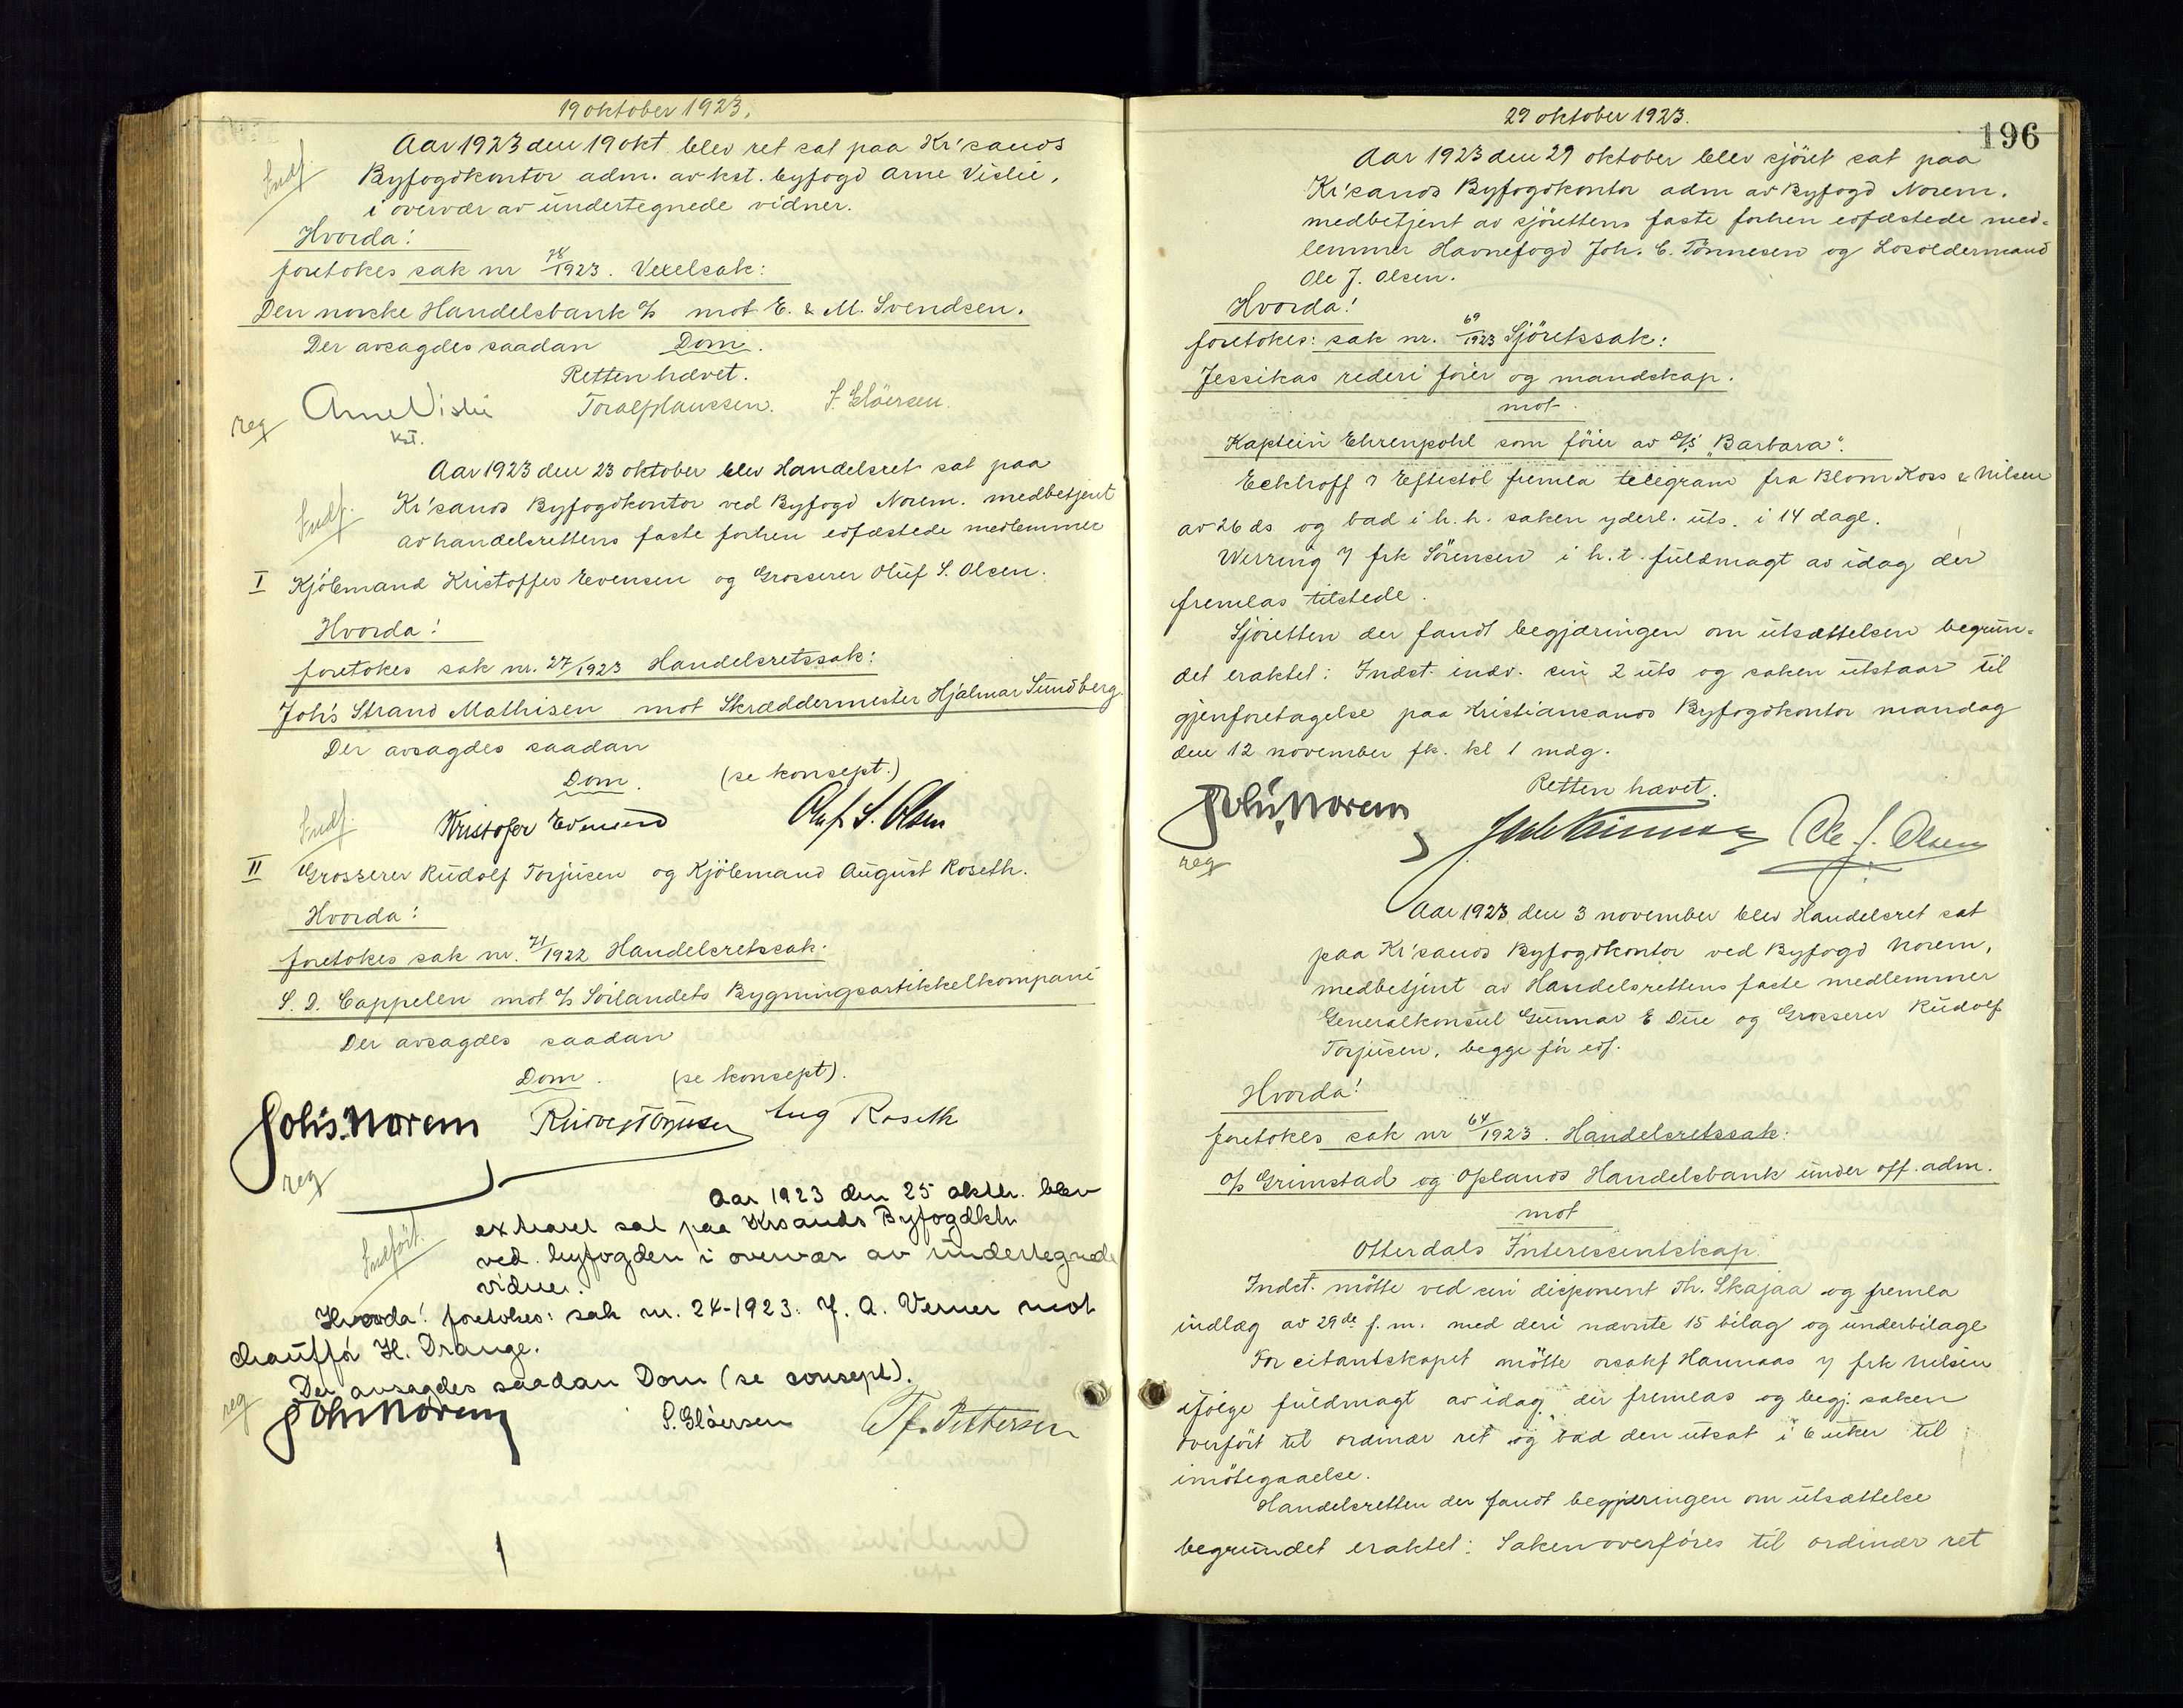 19 oktober 1923.
Aar 1923 den 19 okt. blev ret sat paa Kr'sands
Indf.
Byfogdkontor adm. av kst. byfogd Arne Vislie,
i overvær av undertegnede vidner.
Hvorda!
foretokes sak nr 78/1923. Vexelsak:
Den norske Handelsbank a/s mot E. & M. Svendsen.
Der avsagdes saadan Dom.
Retten hævet.
Arne Vislie S. Gløersen.
kst.
reg
Aar 1923 den 23 oktober blev Handelsret sat paa
Kr'sands Byfogdkontor ved Byfogd Norem. medbetjent
Indf.
av handelsrettens faste forhen edfæstede medlemmer
I Kjöbmand Kristoffer Evensen og Grosserer Oluf S. Olsen.
Hvorda!
foretokes sak nr. 27/1923 Handelsretssak:
Joh's Strand Mathisen mot Skræddermester Hjalmar Sundberg.
Der avsagdes saadan
Dom. (se konsept.)
Indf.
Kristofer Evensen Oluf S. Olsen
II Grosserer Rudolf Torjusen og Kjöbmand August Roseth.
Hvorda!
foretokes sak nr. 71/1922 Handelsretssak:
S. D. Cappelen mot a/s Sörlandets Bygningsartikkelkompani
Der avsagdes saadan
Dom. (se konsept).
Joh's. Norem Rudolf Torjusen Aug Roseth
reg
Aar 1923 den 25 oktbr. blev
extraret sat paa Krsands Byfogdktr
Indfört.
ved byfogden i overvær av undertegnede
vidner.
Hvorda! foretokes: sak nr. 24-1923: J. A. Verner mot
chaufför H. Drange.
Der avsagdes saadan Dom (se consept).
reg
Joh Norem S. Gløersen Tf. Pettersen
29 oktober 1923.
196
Aar 1923 den 29 oktober blev sjöret sat paa
Kr'sands Byfogdkontor adm av Byfogd Norem.
medbetjent av sjörettens faste forhen edfæstede med-
lemmer Havnefogd Joh. C. Tönnesen og Losoldermand
Ole J. Olsen.
Hvorda!
foretokes: sak nr. 69/1923 Sjöretssak:
Jessikas rederi förer og mandskap.
mot
Kaptein Ehrenpohl som förer av D/S "Barbara".
Eckhoff v Eftestöl fremla telegram fra Blom Koss & Nilsen
av 26 ds og bad i h. h. saken yderl. uts. i 14 dage.
Werring v frk Sörensen i h. t. fuldmagt av idag der
fremlas tilstede.
Sjöretten der fandt begjæringen om utsættelsen begrun-
det eraktet: Indst. indv. sin 2 uts og saken utstaar til
gjenforetagelse paa Kristiansands Byfogdkontor mandag
den 12 november fk. kl 1 mdg.
Retten hævet.
Joh's. Norem Ole J. Olsen
reg
Aar 1923 den 3 november blev Handelsret sat
paa Kr'sands Byfogdkontor ved Byfogd Norem,
medbetjent av Handelsrettens faste medlemmer
Generalkonsul Gunnar E Due og Grosserer Rudolf
Torjusen, begge för edf.
Hvorda!
foretokes sak nr 64/1923. Handelsretssak:
a/s Grimstad og Oplands Handelsbank under off. adm.
mot
Otterdals Interessentskap.
Indst. mötte ved sin disponent Th. Skajaa og fremla
indlæg av 29de f. m. med deri nævnte 15 bilag og underbilage
For citantskapet mötte orsakf Hannaas v frk Nilsen
ifölge fuldmagt av idag der fremlas og begj. saken
overfört til ordinær ret og bad den utsat i 6 uker til
imötegaaelse.
Handelsretten der fandt begjæringen om utsættelse
begrundet eraktet: Saken overföres til ordinær ret